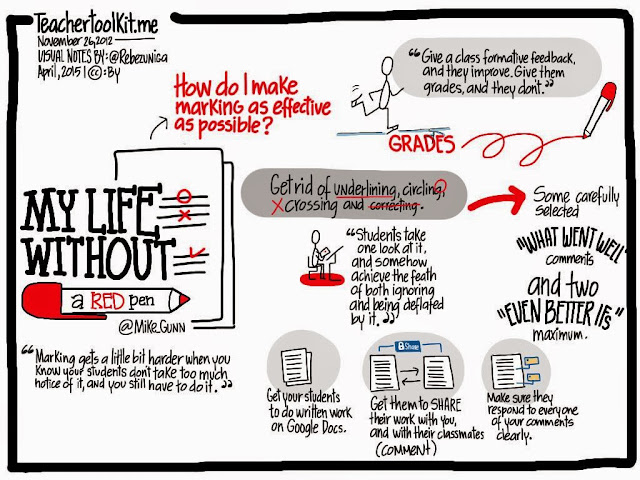 TeacherToolKit.me
November 26, 2012
VISUAL NOTES BY: @Rebezuniga
April, 2015 | © : By
How do I make
marking as effective
as possible?
"Give a class formative feedback,
and they improve. Give them
grades, and they don't."
GRADES
MY LIFE
WITHOUT
a RED pen
@Mike_Gunn
"Marking gets a little bit harder when you
know your students don't take too much
notice of it, and you still have to do it."
Get rid of underlining, circling,
X crossing and correcting.
"Students take
one look at it,
and somehow
achieve the feath
of both ignoring
and being deflated
by it."
Some carefully
selected
"WHAT WENT WELL"
comments
and two
"EVEN BETTER IFs"
maximum.
Get your students
to do written work
on Google Docs.
Share
Get them to SHARE
their work with you,
and with their classmates
(COMMENT)
Make sure they
respond to everyone
of your comments
clearly.